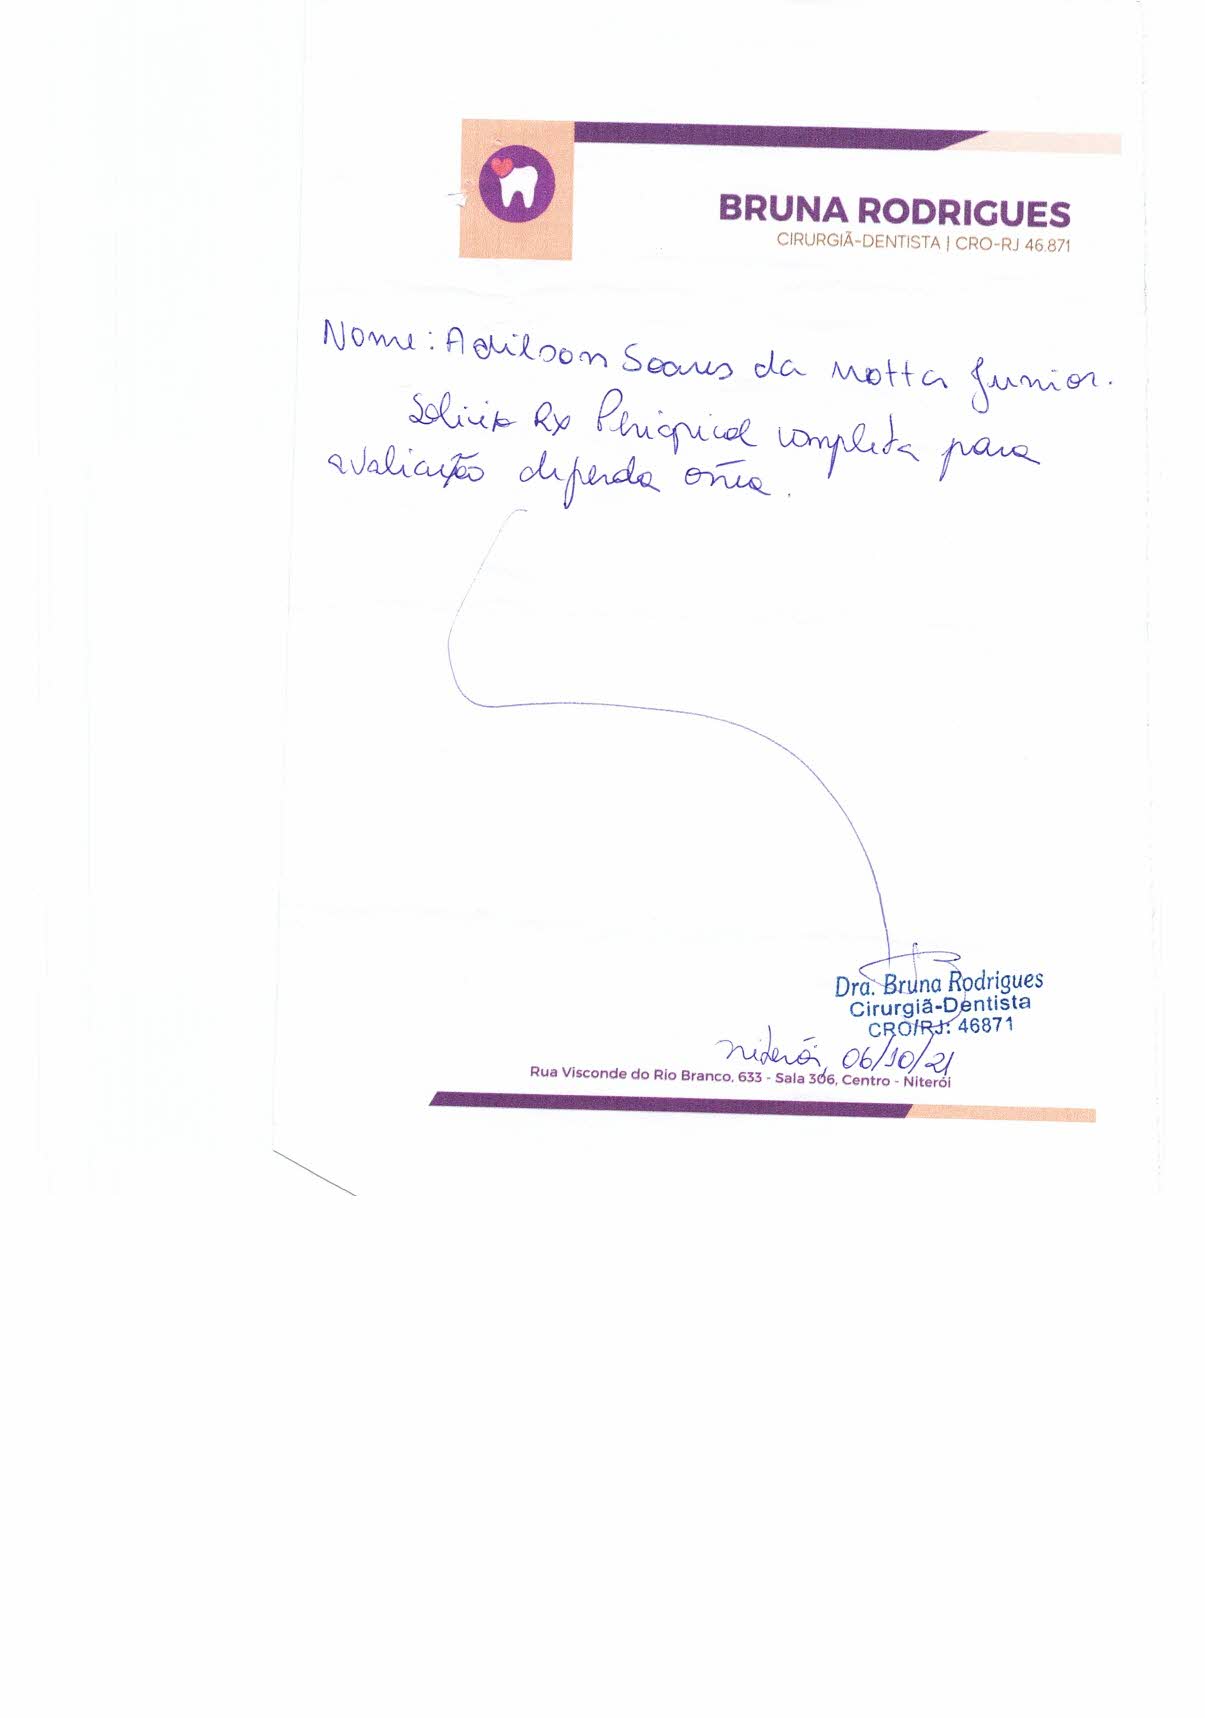 BRUNA RODRIGUES
CIRURGIÃ-DENTISTA | CRO-RJ 46.871
Nome: Adilson Soares da Motta Junior.
Solicito Rx Periapical completa para
avaliação de perda óssea.
Dra. Bruna Rodrigues
Cirurgiã-Dentista
CRO/RJ: 46871
Niterói, 06/10/21
Rua Visconde do Rio Branco, 633 - Sala 306, Centro - Niterói